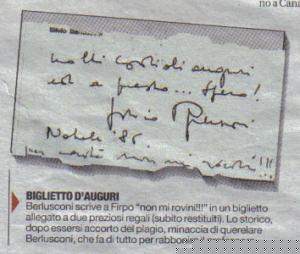 no a Cana
Silvio Berlusconi
molti cordiali auguri
ed a presto... spero!
Silvio Berlusconi
Natale 86.
per carità non mi rovini!!!
BIGLIETTO D'AUGURI
Berlusconi scrive a Firpo "non mi rovini!!!" in un biglietto
allegato a due preziosi regali (subito restituiti). Lo storico,
dopo essersi accorto del plagio, minaccia di querelare
Berlusconi, che fa di tutto per rabbonire